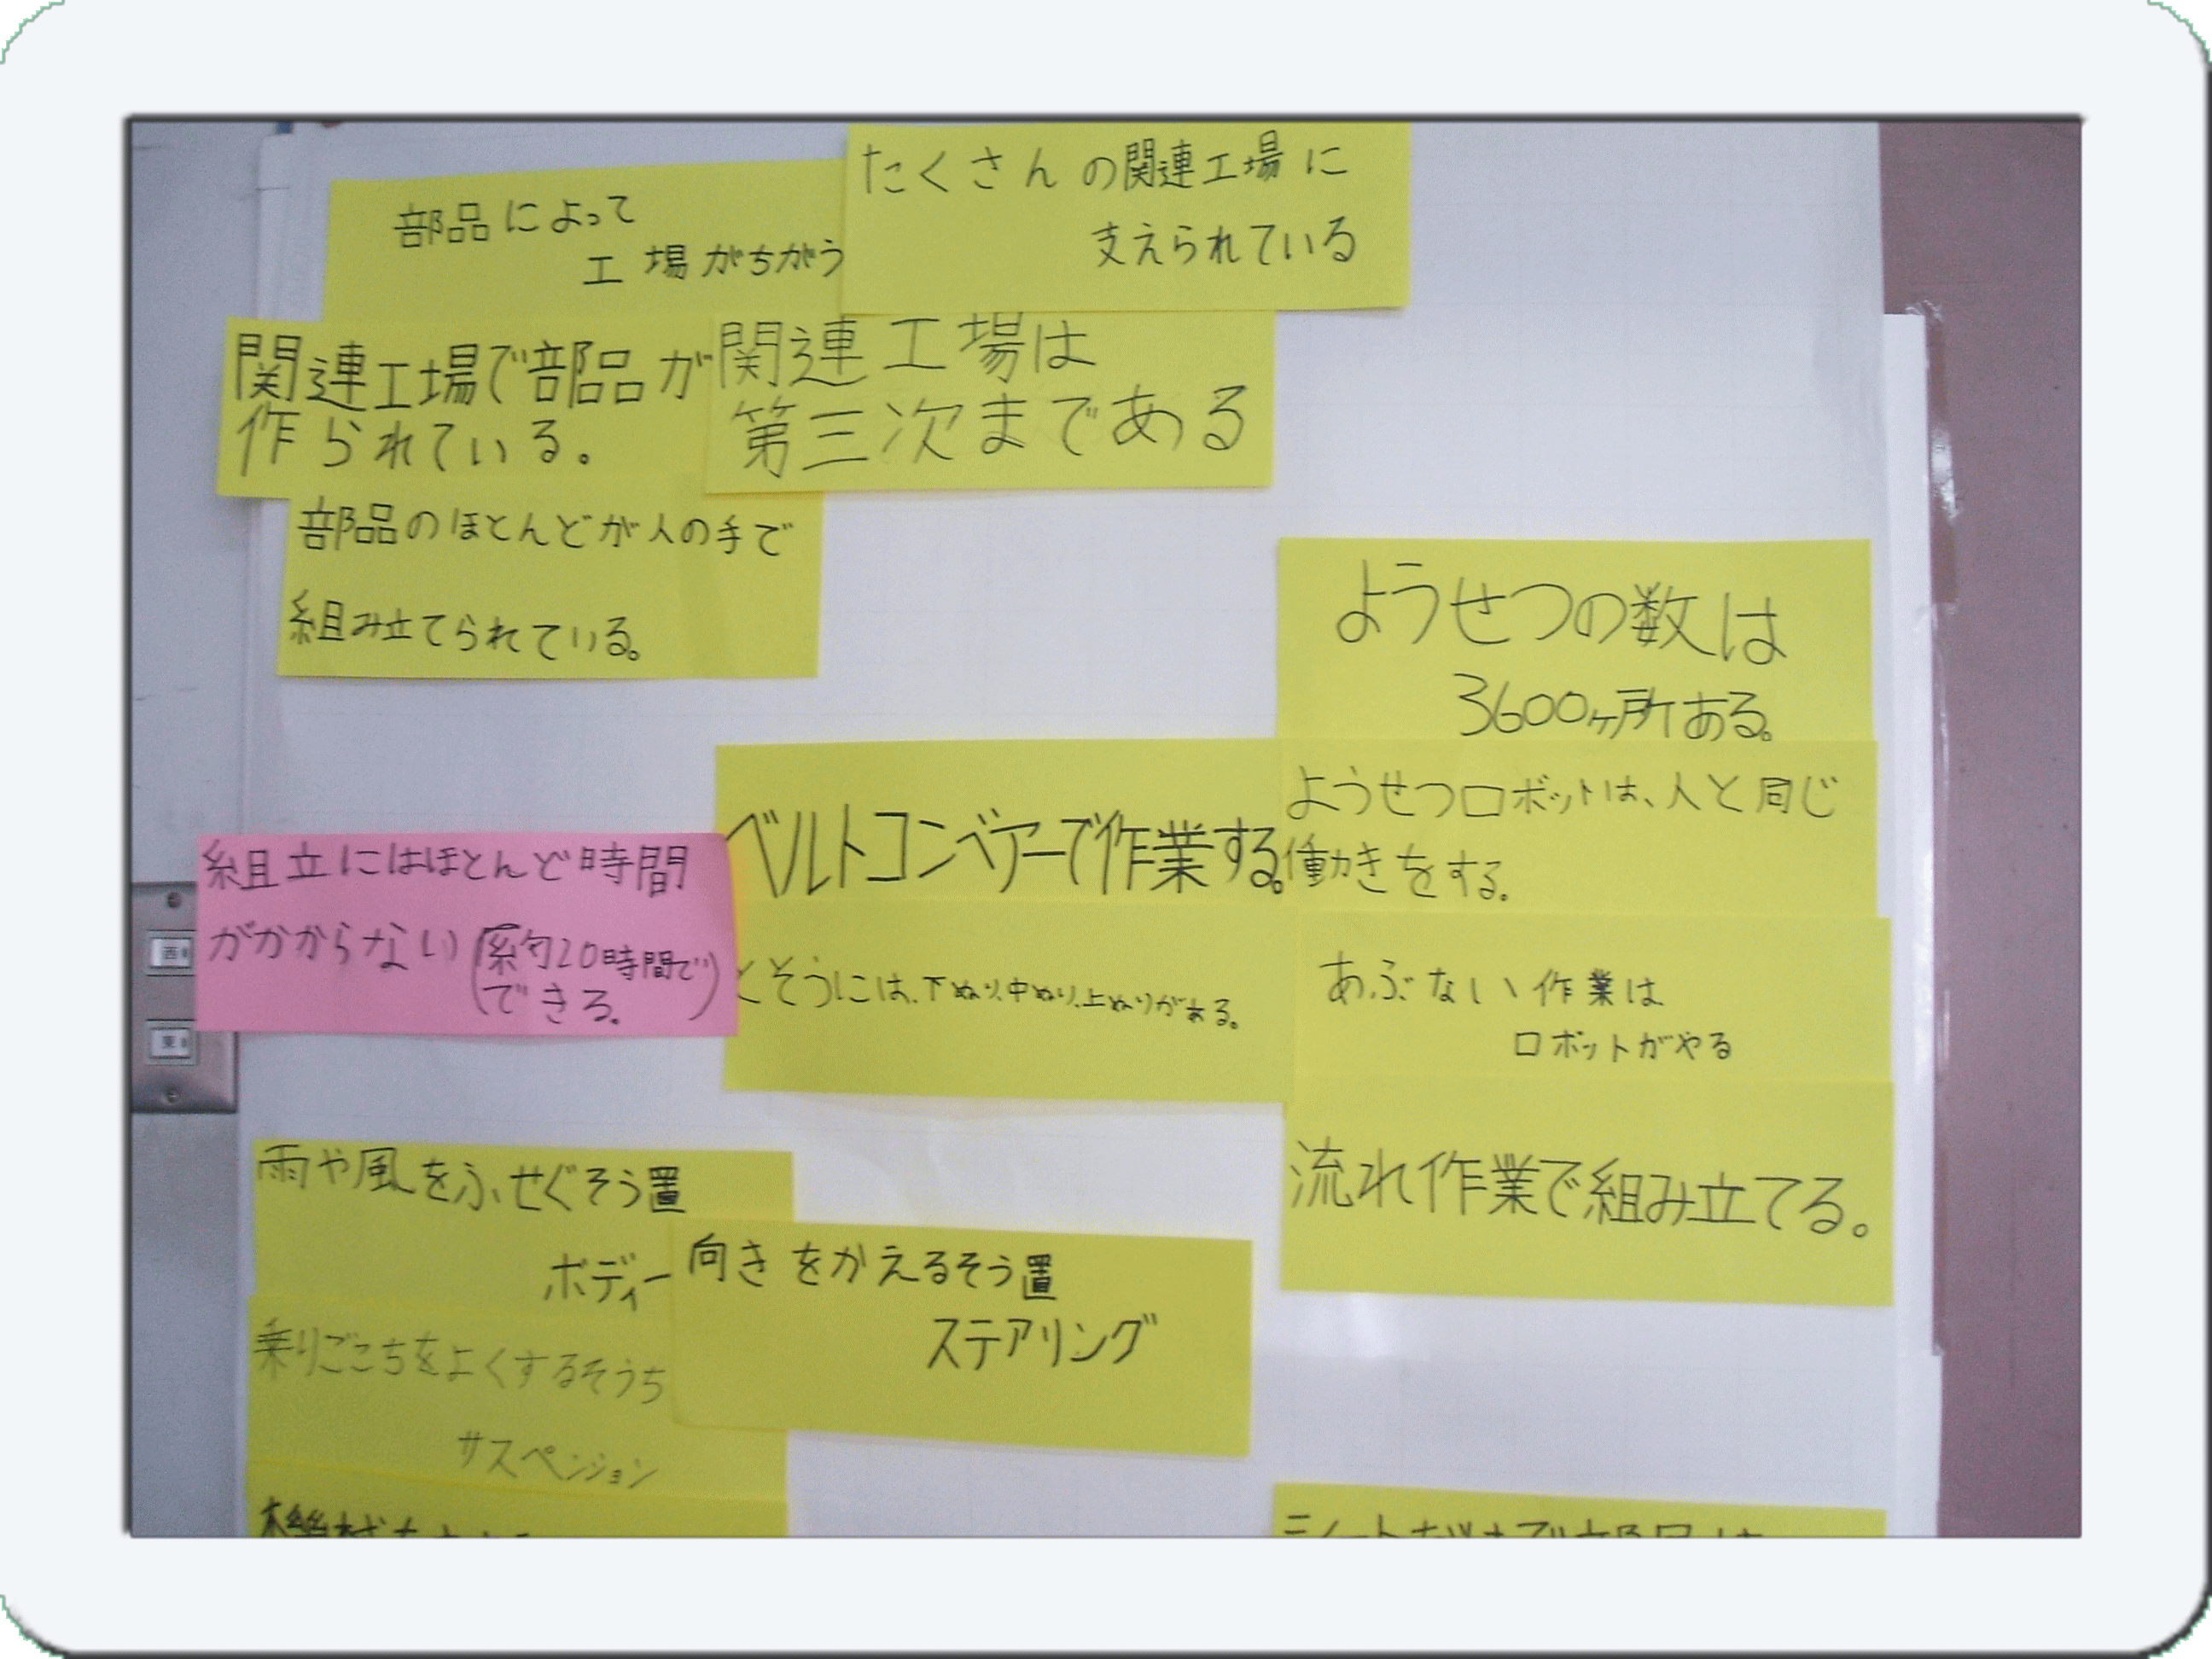 部品によって
工場がちがう
たくさんの関連工場に
支えられている
関連工場で部品が
作られている。
関連工場は
第三次まである
部品のほとんどが人の手で
組み立てられている。
ようせつの数は
3600ヶ所ある。
ベルトコンベアーで作業する。
ようせつロボットは、人と同じ
働きをする。
組立にはほとんど時間
がかからない(約20時間で)
できる。
とそうには、下ぬり、中ぬり、上ぬりがある。
あぶない作業は
ロボットがやる
流れ作業で組み立てる。
雨や風をふせぐそう置
ボディー
向きをかえるそう置
ステアリング
乗りごこちをよくするそうち
サスペンション
西
東